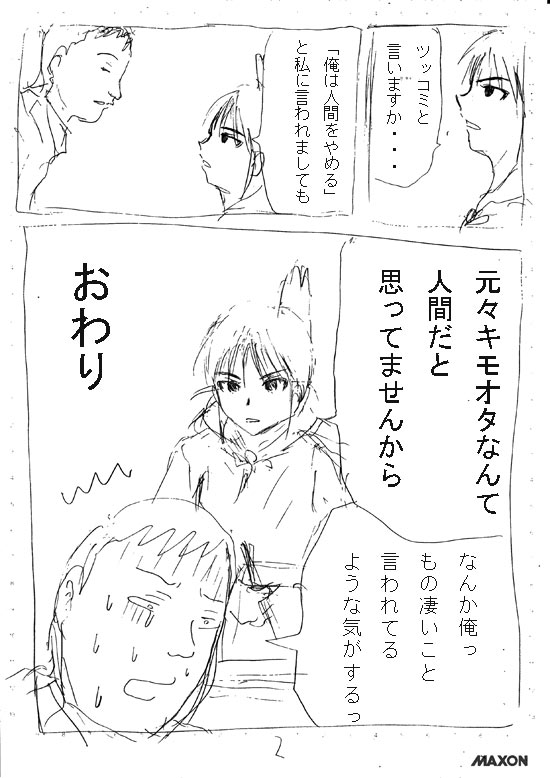 ツッコミと
言いますか・・・
「俺は人間をやめる」
と私に言われましても
元々キモオタなんて
人間だと
思ってませんから
なんか俺っ
もの凄いこと
言われてる
ような気がするっ
おわり
2
MAXON